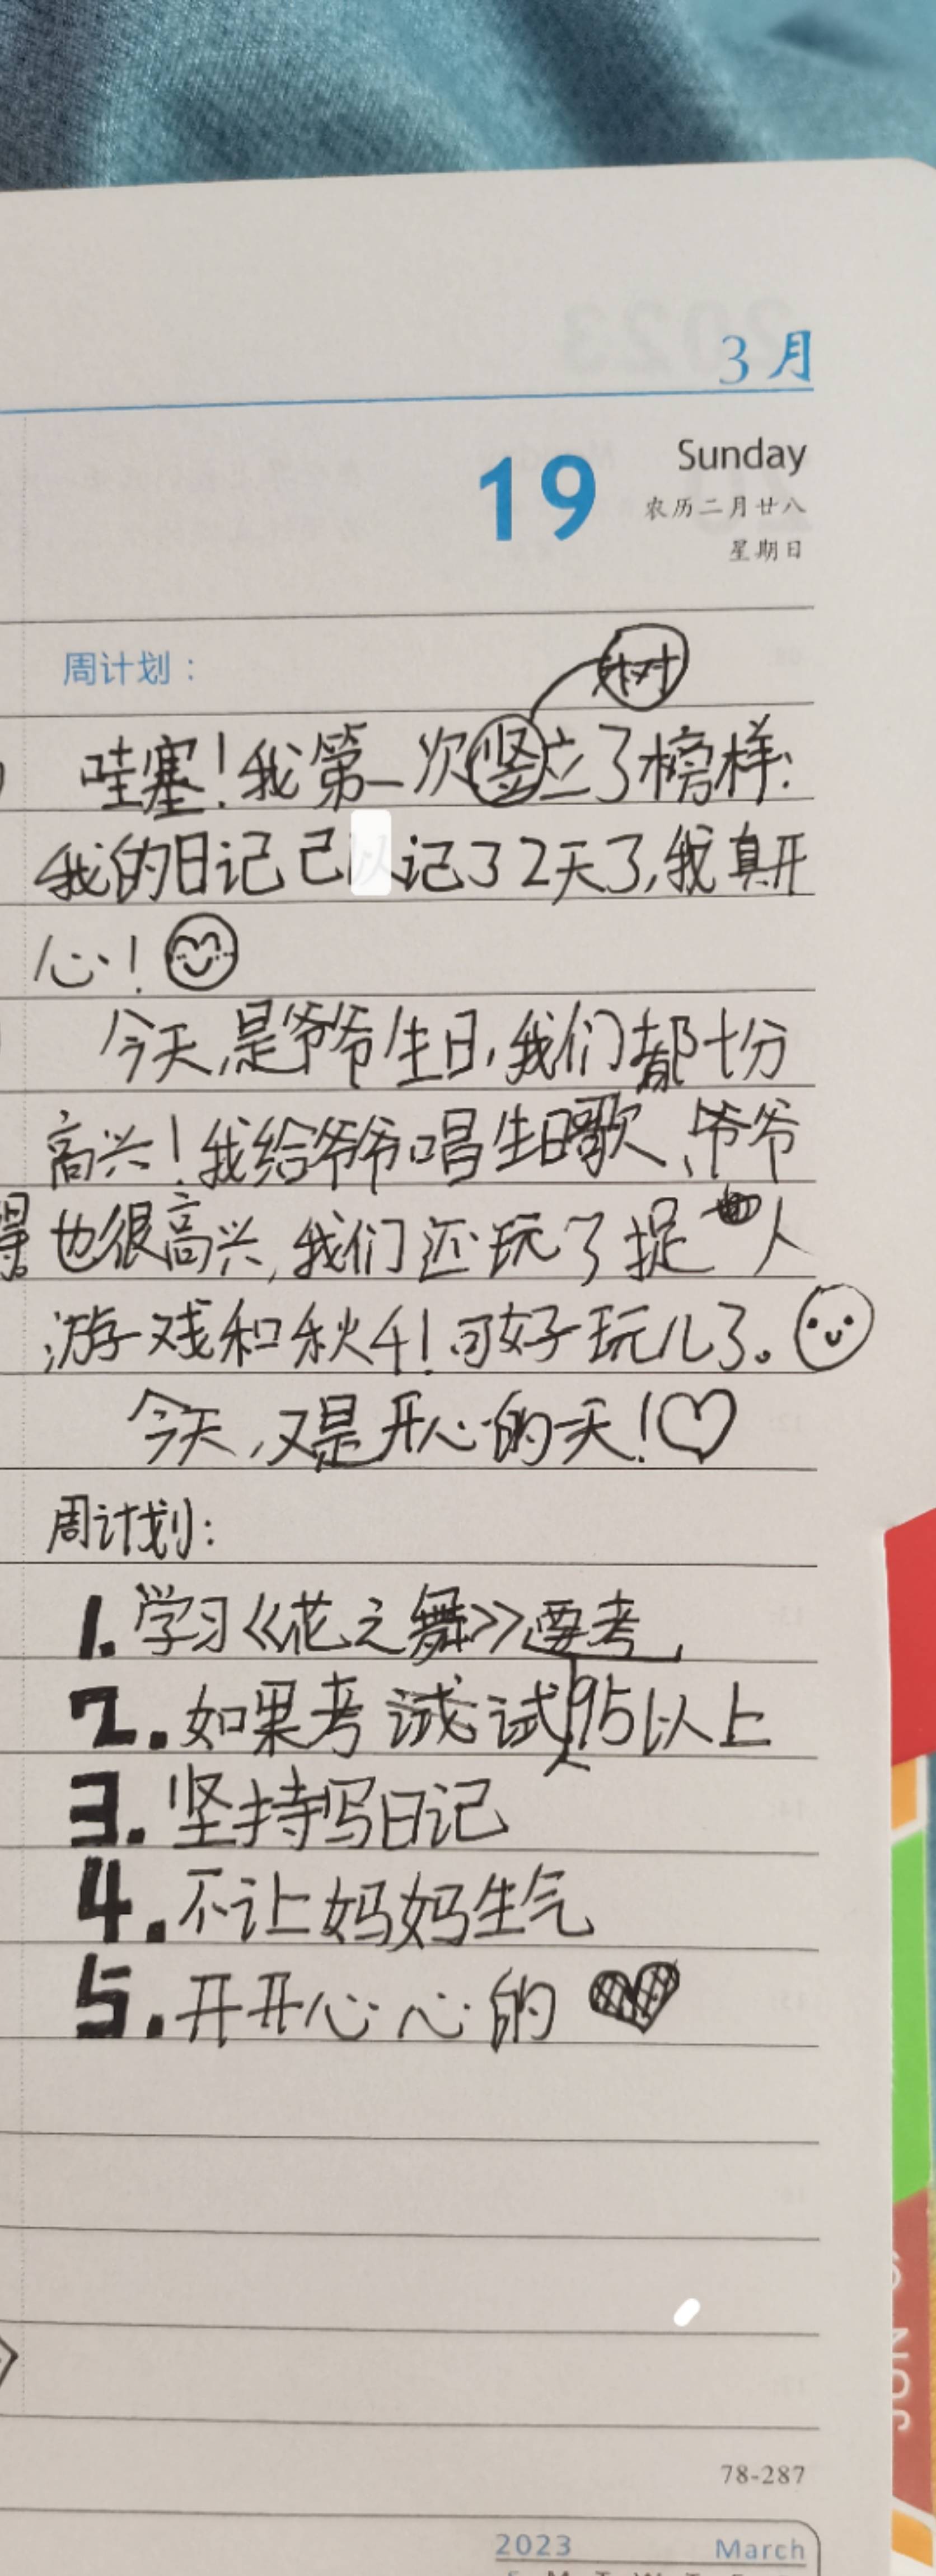 3月
19
Sunday
农历二月廿八
星期日
周计划：
树
哇塞！我第一次竖立了榜样：
我的日记己记了2天了，我真开
心！
今天，是爷爷生日，我们都十分
高兴！我给爷爷唱生日歌、爷爷
得 也很高兴，我们还玩了捉人
游戏和秋千！可好玩儿了。
今天，又是开心的一天！
周计划：
1.学习《花之舞》要考
2.如果考试试95以上
3.坚持写日记
4.不让妈妈生气
5.开开心心的
JUN
78-287
2023 March